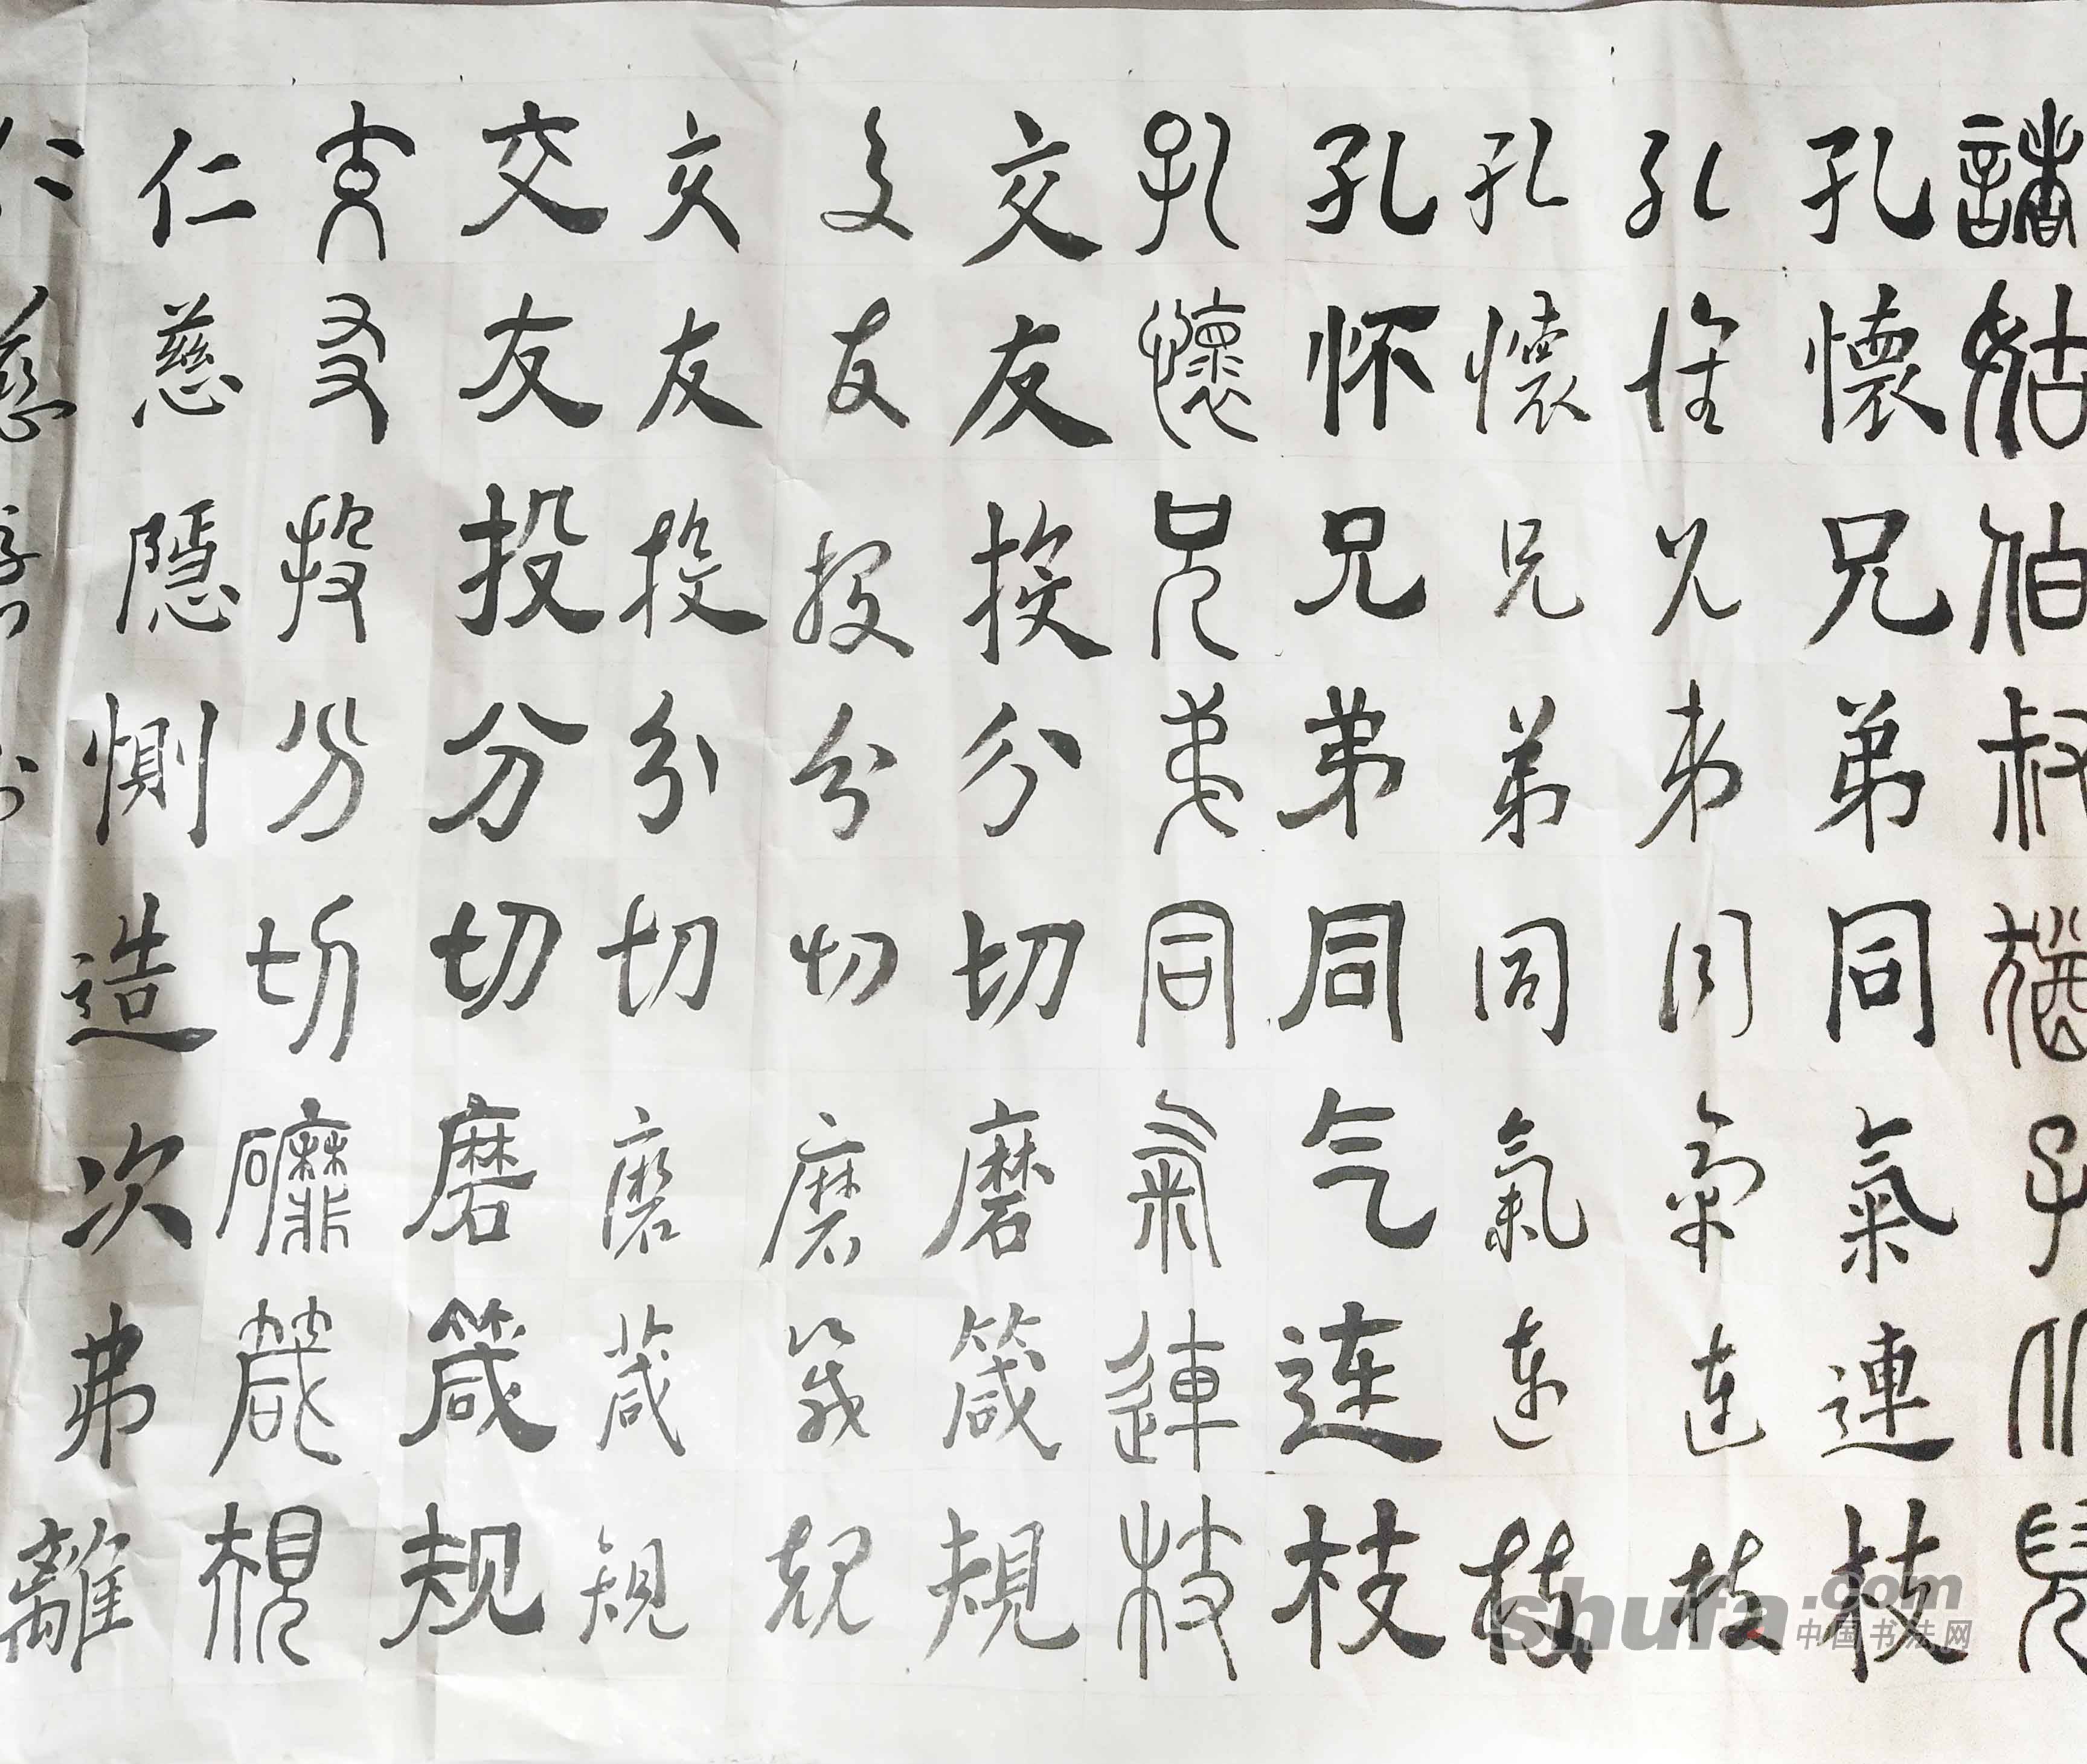 諸姑伯叔猶子比兒
孔懷兄弟同氣連枝
孔懷兄弟同氣連枝
孔懷兄弟同氣連枝
孔怀兄弟同气连枝
孔懷兄弟同氣連枝
交友投分切磨箴規
交友投分切磨箴規
交友投分切磨箴規
交友投分切磨箴规
交友投分切磨箴規
仁慈隱惻造次弗離
仁慈
shufa.com
中国书法网